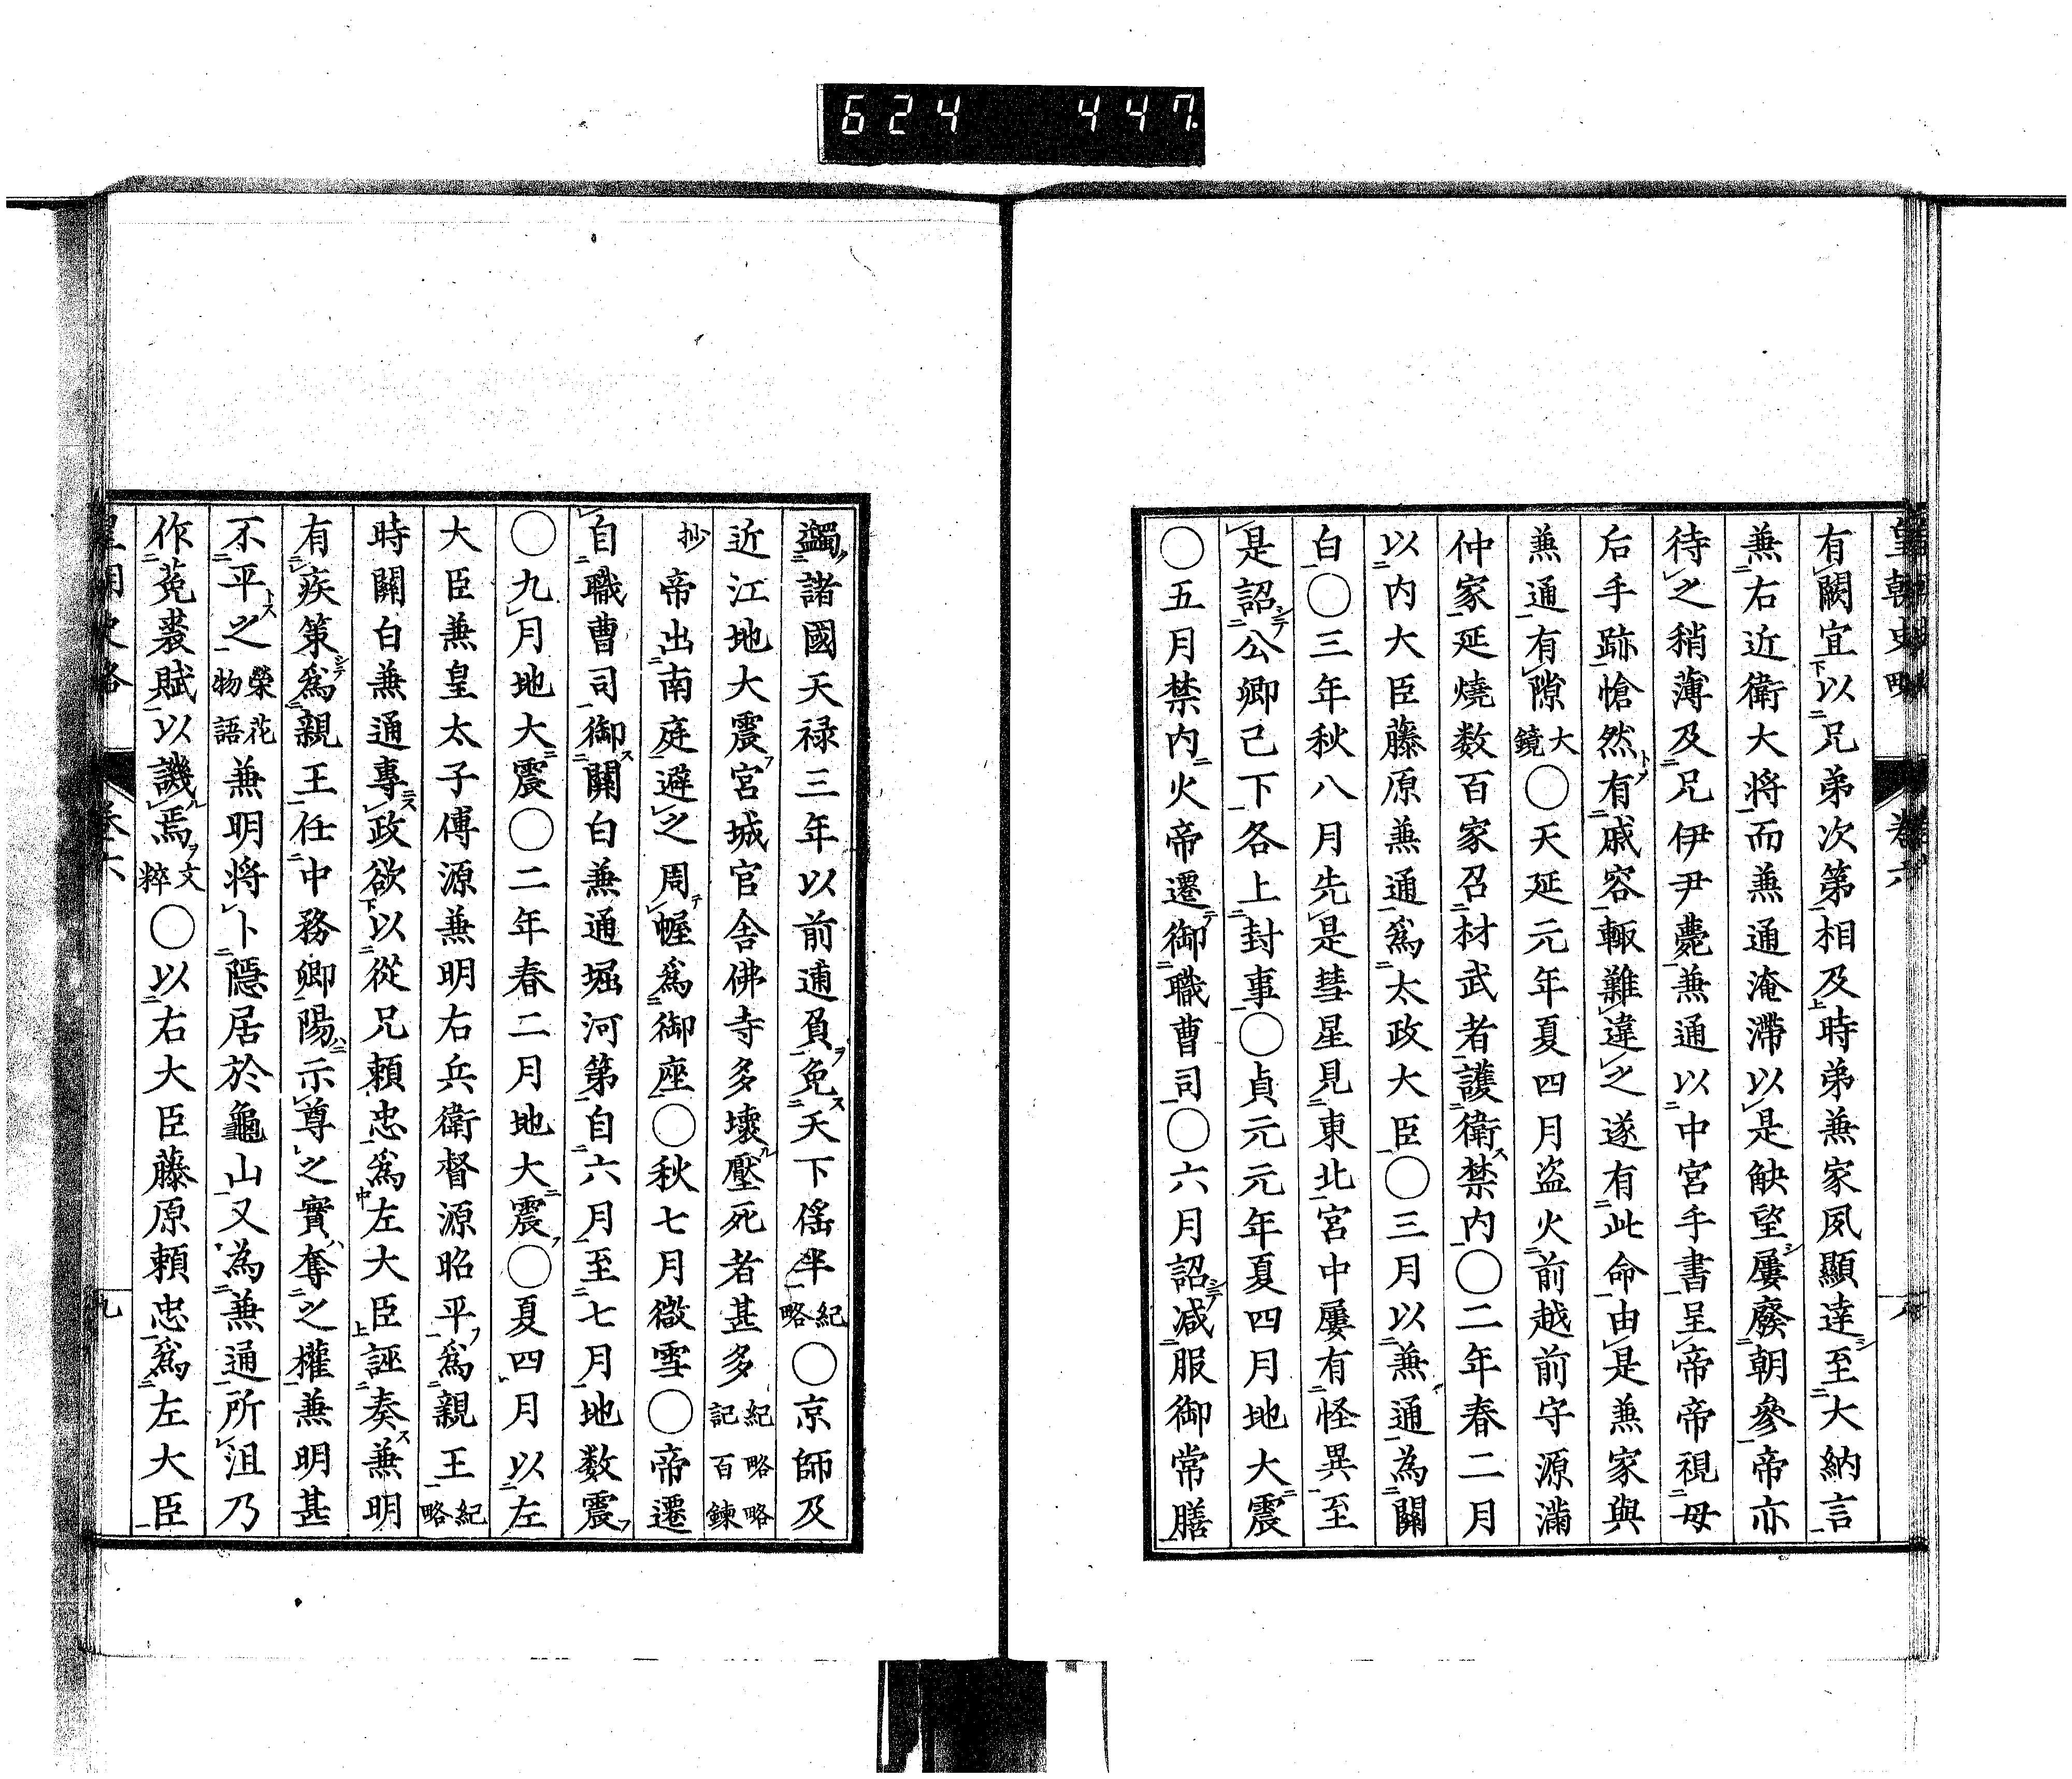 624 447.
皇朝史略 卷六
有闕宜以兄弟次第相及時弟兼家夙顯達至大納言
兼右近衛大将而兼通淹滯以是觖望屢廢朝參帝亦
待之稍薄及兄伊尹薨兼通以中宮手書呈帝帝視母
后手跡愴然有戚容輙難違之遂有此命由是兼家與
兼通有隙大鏡〇天延元年夏四月盗火前越前守源滿
仲家延燒数百家召材武者護衛禁内〇二年春二月
以内大臣藤原兼通爲太政大臣〇三月以兼通為關
白〇三年秋八月先是彗星見東北宮中屢有怪異至
是詔公卿已下各上封事〇貞元元年夏四月地大震
〇五月禁内火帝遷御職曹司〇六月詔減服御常膳
蠲諸國天禄三年以前逋負免天下徭半紀略〇京師及
近江地大震宮城官舎佛寺多壞壓死者甚多紀略百鍊
抄帝出南庭避之周幄爲御座〇秋七月微雪〇帝遷
自職曹司御關白兼通堀河第自六月至七月地数震
〇九月地大震〇二年春二月地大震〇夏四月以左
大臣兼皇太子傅源兼明右兵衛督源昭平爲親王紀略
時關白兼通專政欲以從兄頼忠爲左大臣誣奏兼明
有疾策爲親王任中務卿陽示尊之實奪之權兼明甚
不平之榮花物語兼明将卜隱居於龜山又為兼通所沮乃
作菟裘賦以譏焉文粹〇以右大臣藤原頼忠爲左大臣
皇朝史略 卷六 九